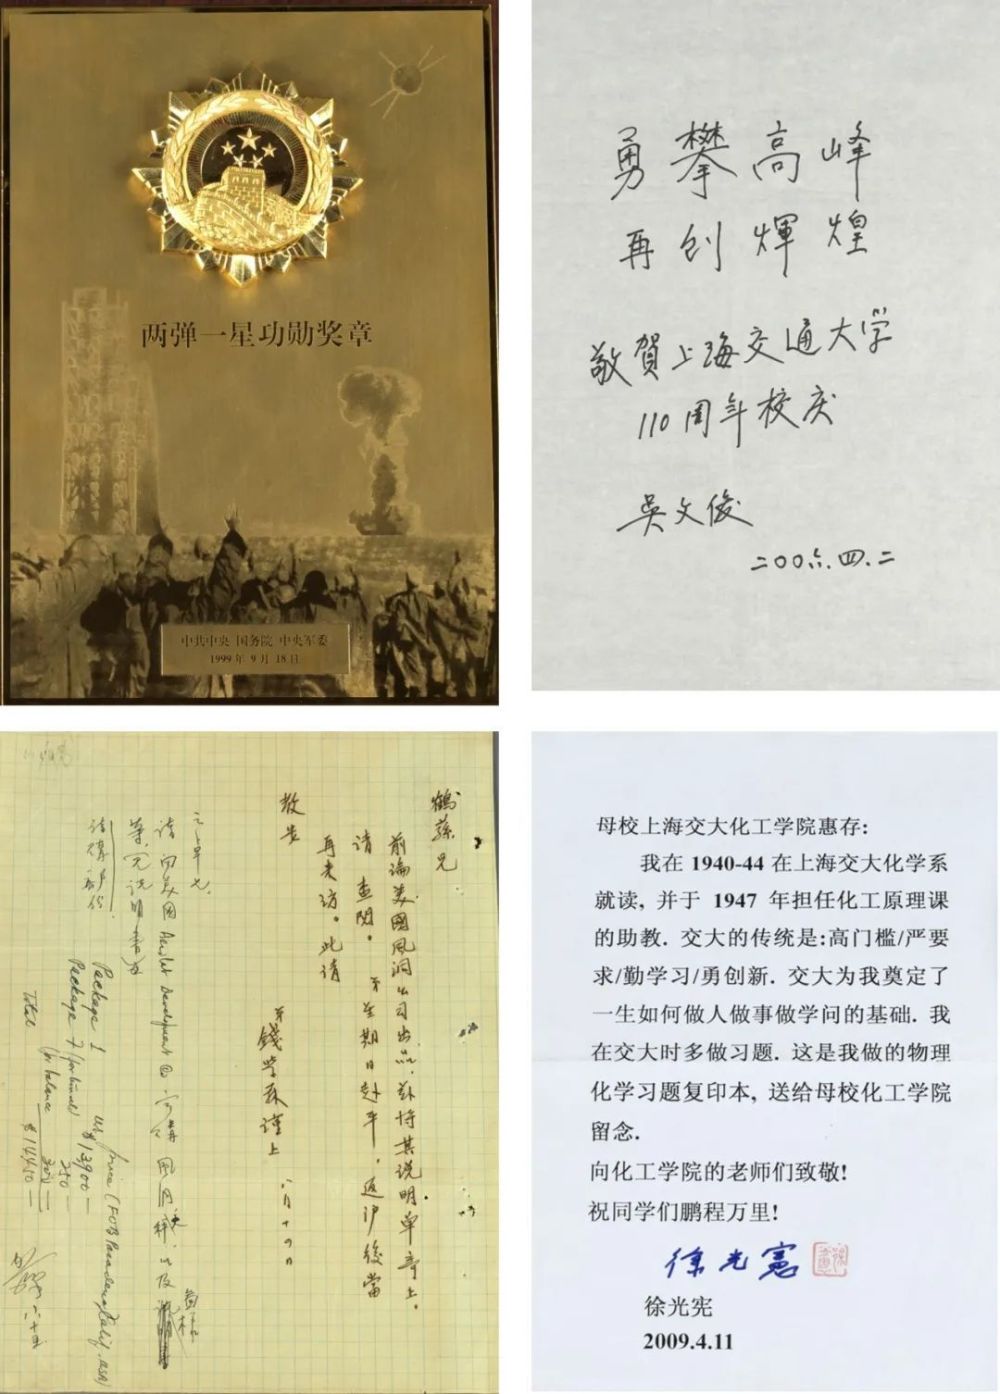 两弹一星功勋奖章
中共中央 国务院 中央军委
1999年9月18日
勇攀高峰
再创輝煌
敬賀上海交通大学
110周年校庆
吴文俊
二00六.四.二
鹤荪兄
前論美國風洞公司出品,茲将其说明單寄上。
请 查閱。 弟星期日赴平,返沪後當
再来訪。此请
教安
弟 錢学森谨上
八月十四日
请向美國 Aerolab Development Co.
Package 1
Package 7
US price (FOB Pasadena, Calif., USA)
$13900—
250—
300—
Total $14450—
母校上海交大化工学院惠存:
我在 1940-44 在上海交大化学系
就读, 并于 1947 年担任化工原理课
的助教. 交大的传统是:高门槛/严要
求/勤学习/勇创新. 交大为我奠定了
一生如何做人做事做学问的基础. 我
在交大时多做习题. 这是我做的物理
化学习题复印本, 送给母校化工学院
留念.
向化工学院的老师们致敬!
祝同学们鹏程万里!
徐光憲
徐光宪
2009.4.11